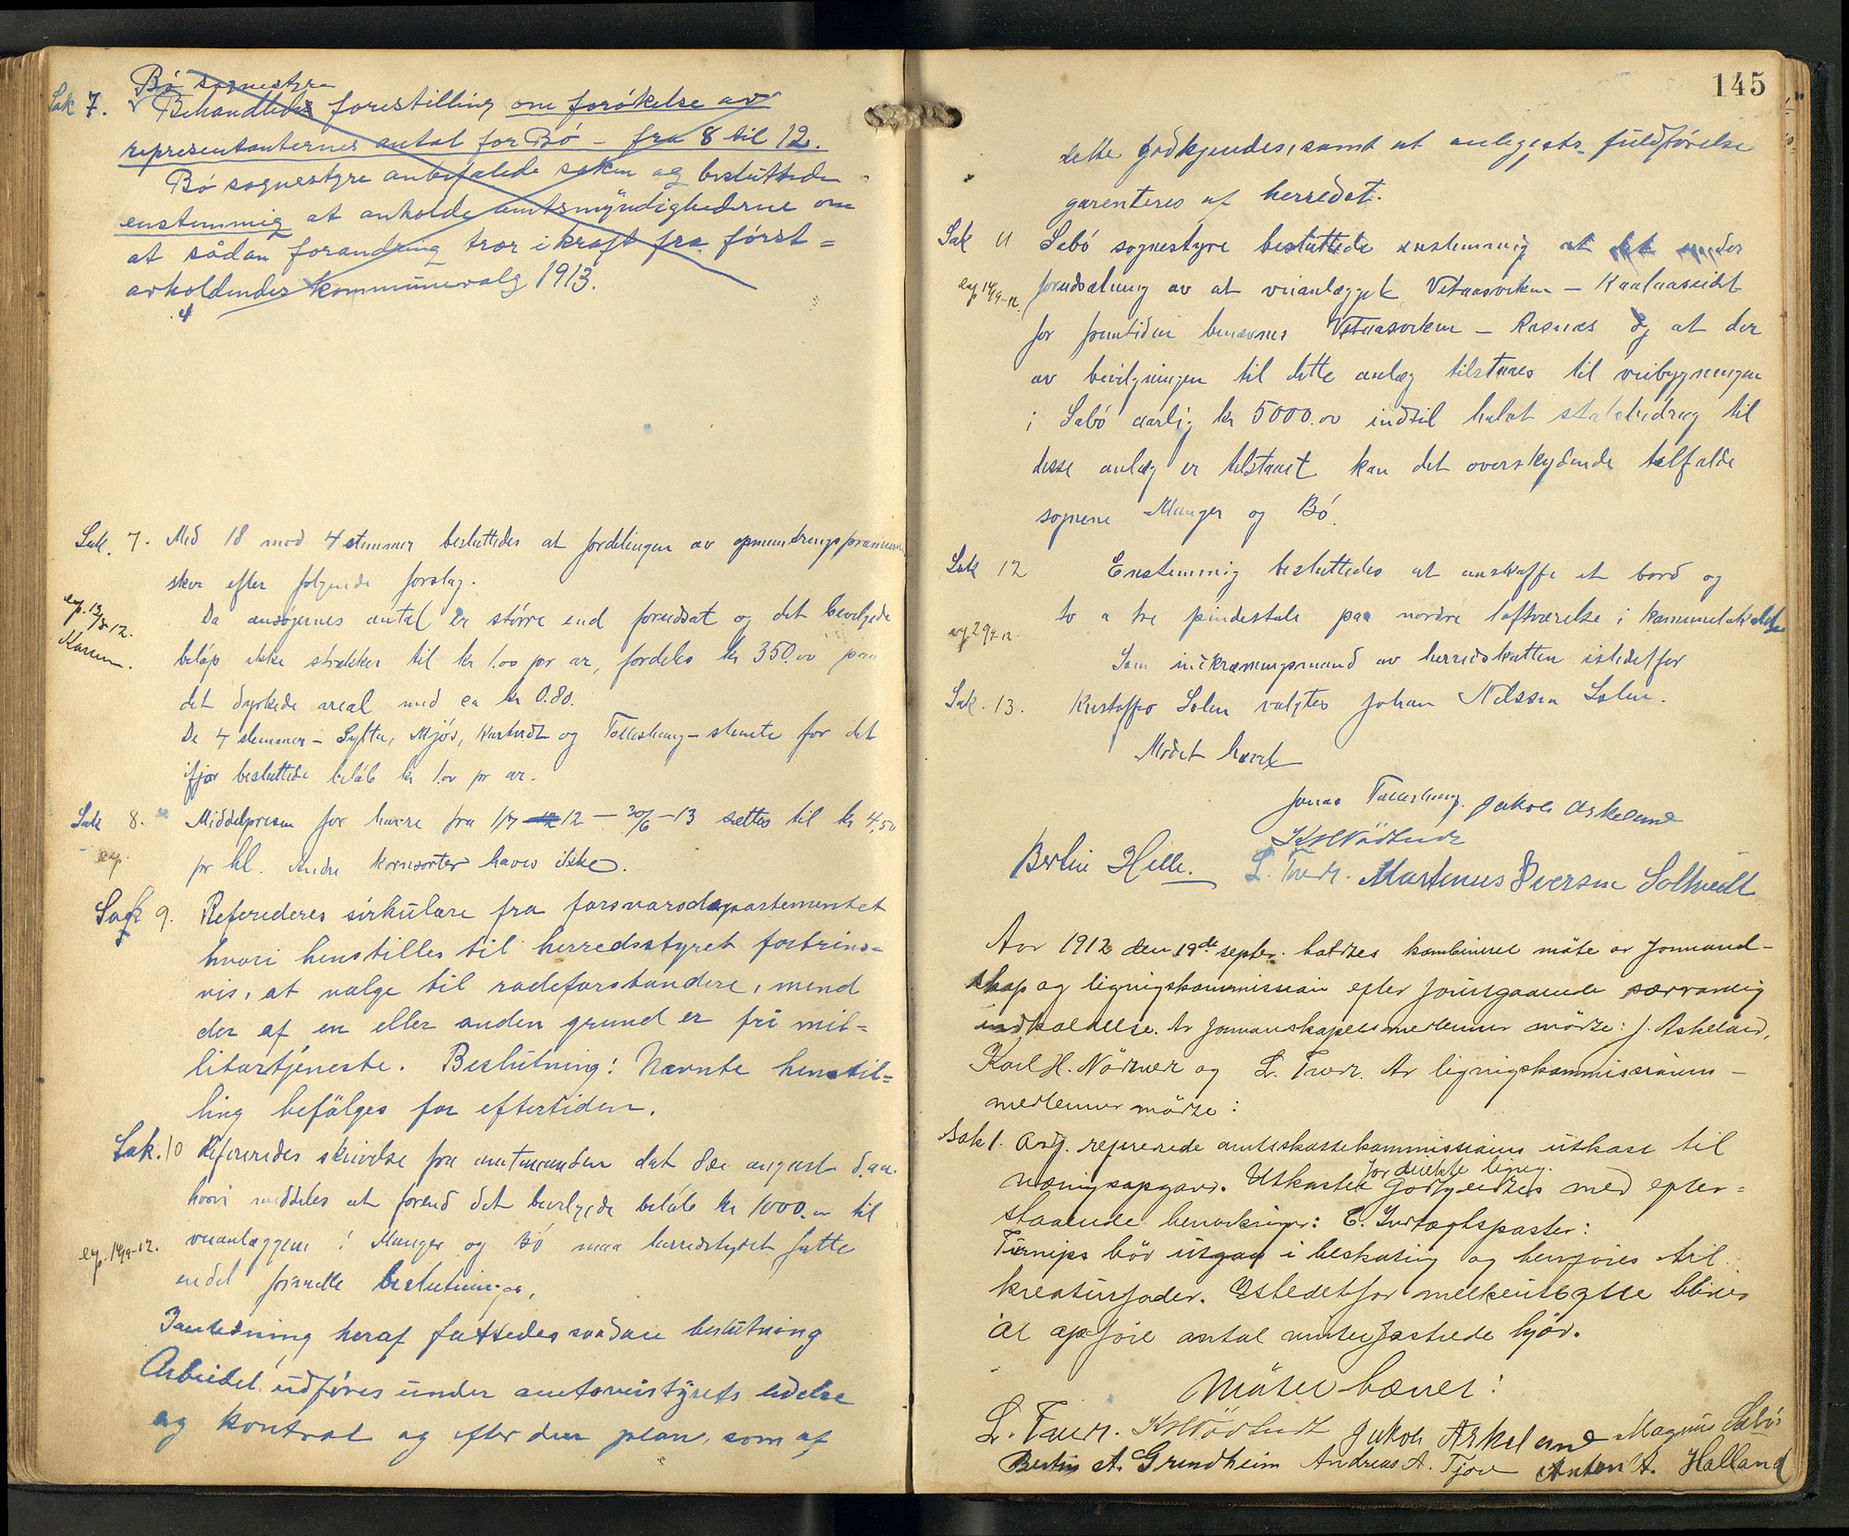 Bö sognestyre
Sak 7. Behandledes forestilling om forökelse av
representanternes antal for Bö - fra 8 til 12.
Bö sognestyre anbefalede saken og besluttede
enstemmig at anholde amtsmyndighederne om
at sådan forandring træer i kraft fra först=
avholdendes kommunevalg 1913.
Sak. 7. Med 18 mod 4 stemmer besluttedes at fordelingen av opmuntringspræmier
sker efter følgende forslag.
Da ansøgernes antal er større end forudsat og det bevilgede
exp. 13/9-12.
beløp ikke strækker til kr 1.00 pr ar, fordeles kr 350.00 paa
det dyrkede areal med ca kr 0.80.
De 4 stemmer - Sylta, Mjøs, og - stemte for det
ifjor besluttede beløb kr 1.00 pr ar.
Sak 8. Middelprisen for havre fra 1/7 12 - 30/6 - 13 sættes til kr 4,50
exp.
pr hl. Andre kornsorter haves ikke.
Sak 9. Refereredes sirkulære fra forsvarsdepartementet
hvori henstilles til herredsstyret fortrins=
vis, at valge til rodeforstandere, mend
der af en eller anden grund er fri mil=
litærtjeneste. Beslutning: Nævnte henstil=
ling befölges for eftertiden.
Sak. 10 Refereredes skrivelse fra amtmanden dat 8de august d.aa.
hvori meddeles at forend det bevilgede beløb kr 1000.00 til
veianlæggene i Manger og Bö maa herredstyret fatte
exp. 14/9-12.
endel fornødne beslutninger.
I anledning heraf fattedes saadan beslutning
Arbeidet udföres under amtsveistyrets ledelse
og kontrol og efter den plan, som af
145
dette godkjendes, samt at anlegets fuldförelse
garenteres af herredet.
Sak 11 Sæbö sognestyre besluttede enstemmig at under
exp 14/9-12. forudsætning av at veianlægget Vetaasviken - Kaalaaseidet
for fremtiden benævnes Vetaasviken - Rosnæs og at der
av bevilgningen til dette anlæg tilstaaes til veibygningen
i Sæbö aarlig kr 5000.00 indtil halvt statsbidrag til
disse anlæg er tilstaaet kan det overskydende tilfalde
sognene Manger og Bö.
Sak 12 Enstemmig besluttedes at anskaffe et bord og
to a tre pindestole paa nordre loftværelse i kommunelokalet
Som indkrævningsmand av herredskatten istedetfor
Sak. 13. Kristoffer Solem valgtes Johan Nilssen Solem.
Mødet hævet
Jonas Jakob Askeland
Bertin Helle. Martinus Iversen Soltvedt
Aar 1912 den 19de septbr. holdtes kombineret möte av formand-
skap og ligningskommission efter foutgaaende særvanlig
indkaldelse. Av formanskapets medlemmer mötte: J. Askeland,
Karl H. Nö og L. Av ligningskommissionens -
medlemmer mötte:
Sak 1. Ordf. refererede amtsskattekommissionens utkast til
for direkte ligng.
næringsopgave. Utkastet godkjendtes med efter=
staaende bemerkninger: C. Indtægtsposter:
Turnips bör utgaa i beskatnig og henføres til
kreaturfoder. Istedetfor melkeutbytte blives
at opføre antal vinterfostrede kjør.
Mötet hævet:
Jakob Askeland Magnus Sæbö
Bertin A. Grindheim Andreas A. Anton A. Halland